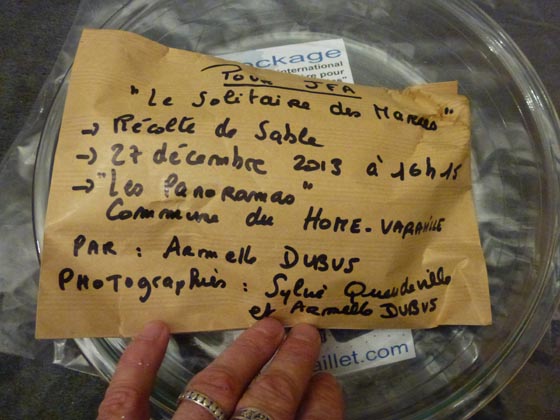 package
international
pour
POUR JFA
"Le Solitaire des Marres"
→ Récolte de Sable
→ 27 décembre 2013 à 16h15
→ "Les Panoramas"
Commune du HOME-VARAVILLE
PAR : Armelle DUBUS
PHOTOgraphiés : Sylvie
et Armelle DUBUS
aillet.com